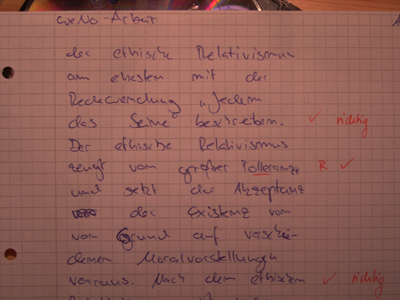 WeNo-Arbeit
der ethische Relativismus
am ehesten mit der
Redewendung "Jedem
das Seine" beschreiben. ✓ richtig
Der ethische Relativismus
zeugt von großer Tolleranz R ✓
und setzt die Akzeptanz
der Existenz von
von Grund auf verschie-
denen Moralvorstellungen
voraus. Nach dem ethischen ✓ richtig